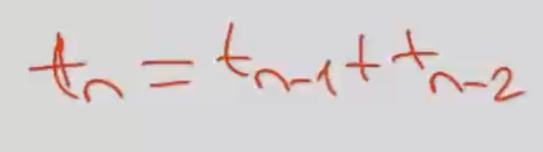 tₙ = tₙ₋₁ + tₙ₋₂